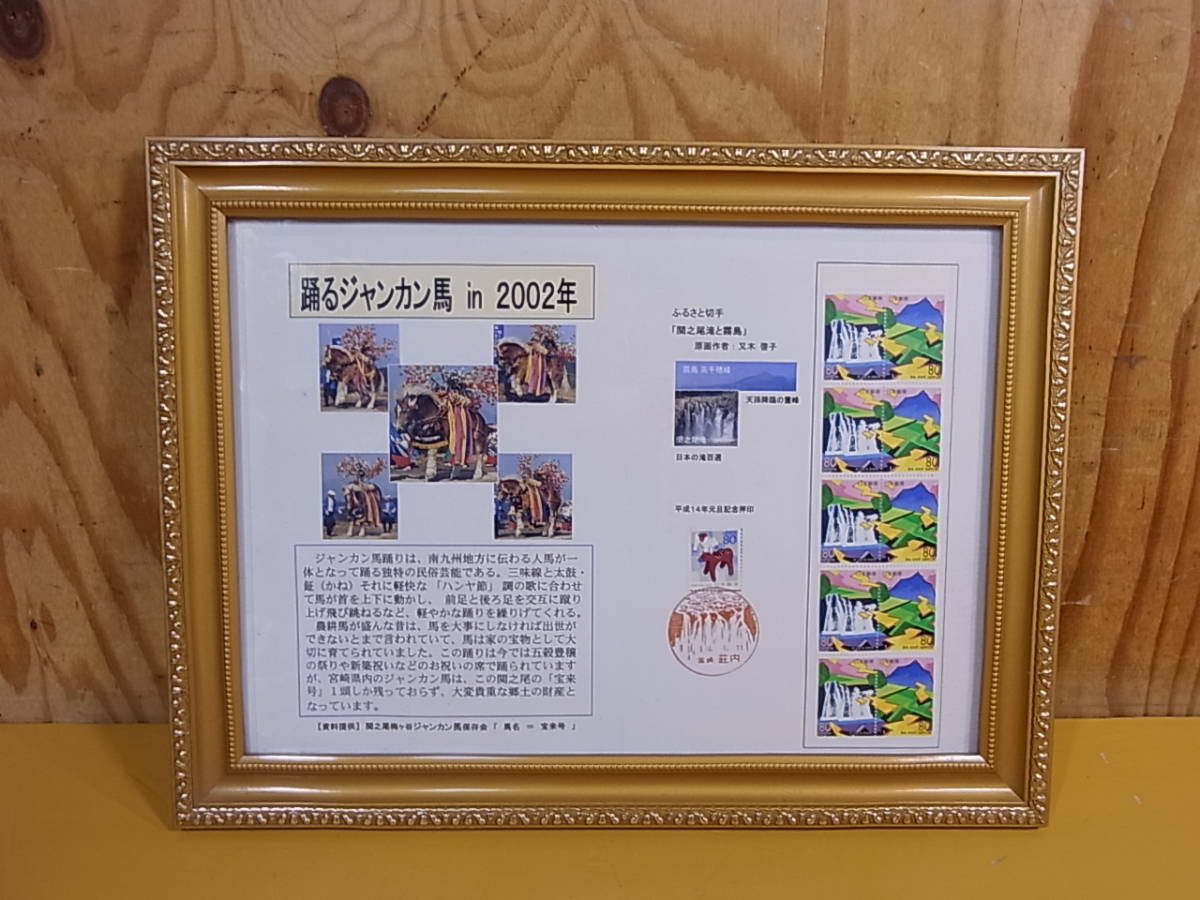 踊るジャンカン馬 in 2002年
ジャンカン馬踊りは、南九州地方に伝わる人馬が一
体となって踊る独特の民俗芸能である。三味線と太鼓・
鉦（かね）それに軽快な「ハンヤ節」調の歌に合わせ
て馬が首を上下に動かし、前足と後ろ足を交互に蹴り
上げ飛び跳ねるなど、軽やかな踊りを繰りげてくれる。
農耕馬が盛んな昔は、馬を大事にしなければ出世が
できないとまで言われていて、馬は家の宝物として大
切に育てられていました。この踊りは今では五穀豊穣
の祭りや新築祝いなどのお祝いの席で踊られています
が、宮崎県内のジャンカン馬は、この関之尾の「宝来
号」１頭しか残っておらず、大変貴重な郷土の財産と
なっています。
【資料提供】関之尾梅ヶ谷ジャンカン馬保存会「馬名 ＝ 宝来号」
ふるさと切手
「関之尾滝と霧島」
原画作者：又木 啓子
霧島 高千穂峰
天孫降臨の霊峰
関之尾滝
日本の滝百選
平成14年元旦記念押印
80
14.1.1
宮崎 荘内
80
80
80
80
80
80
80
80
80
80